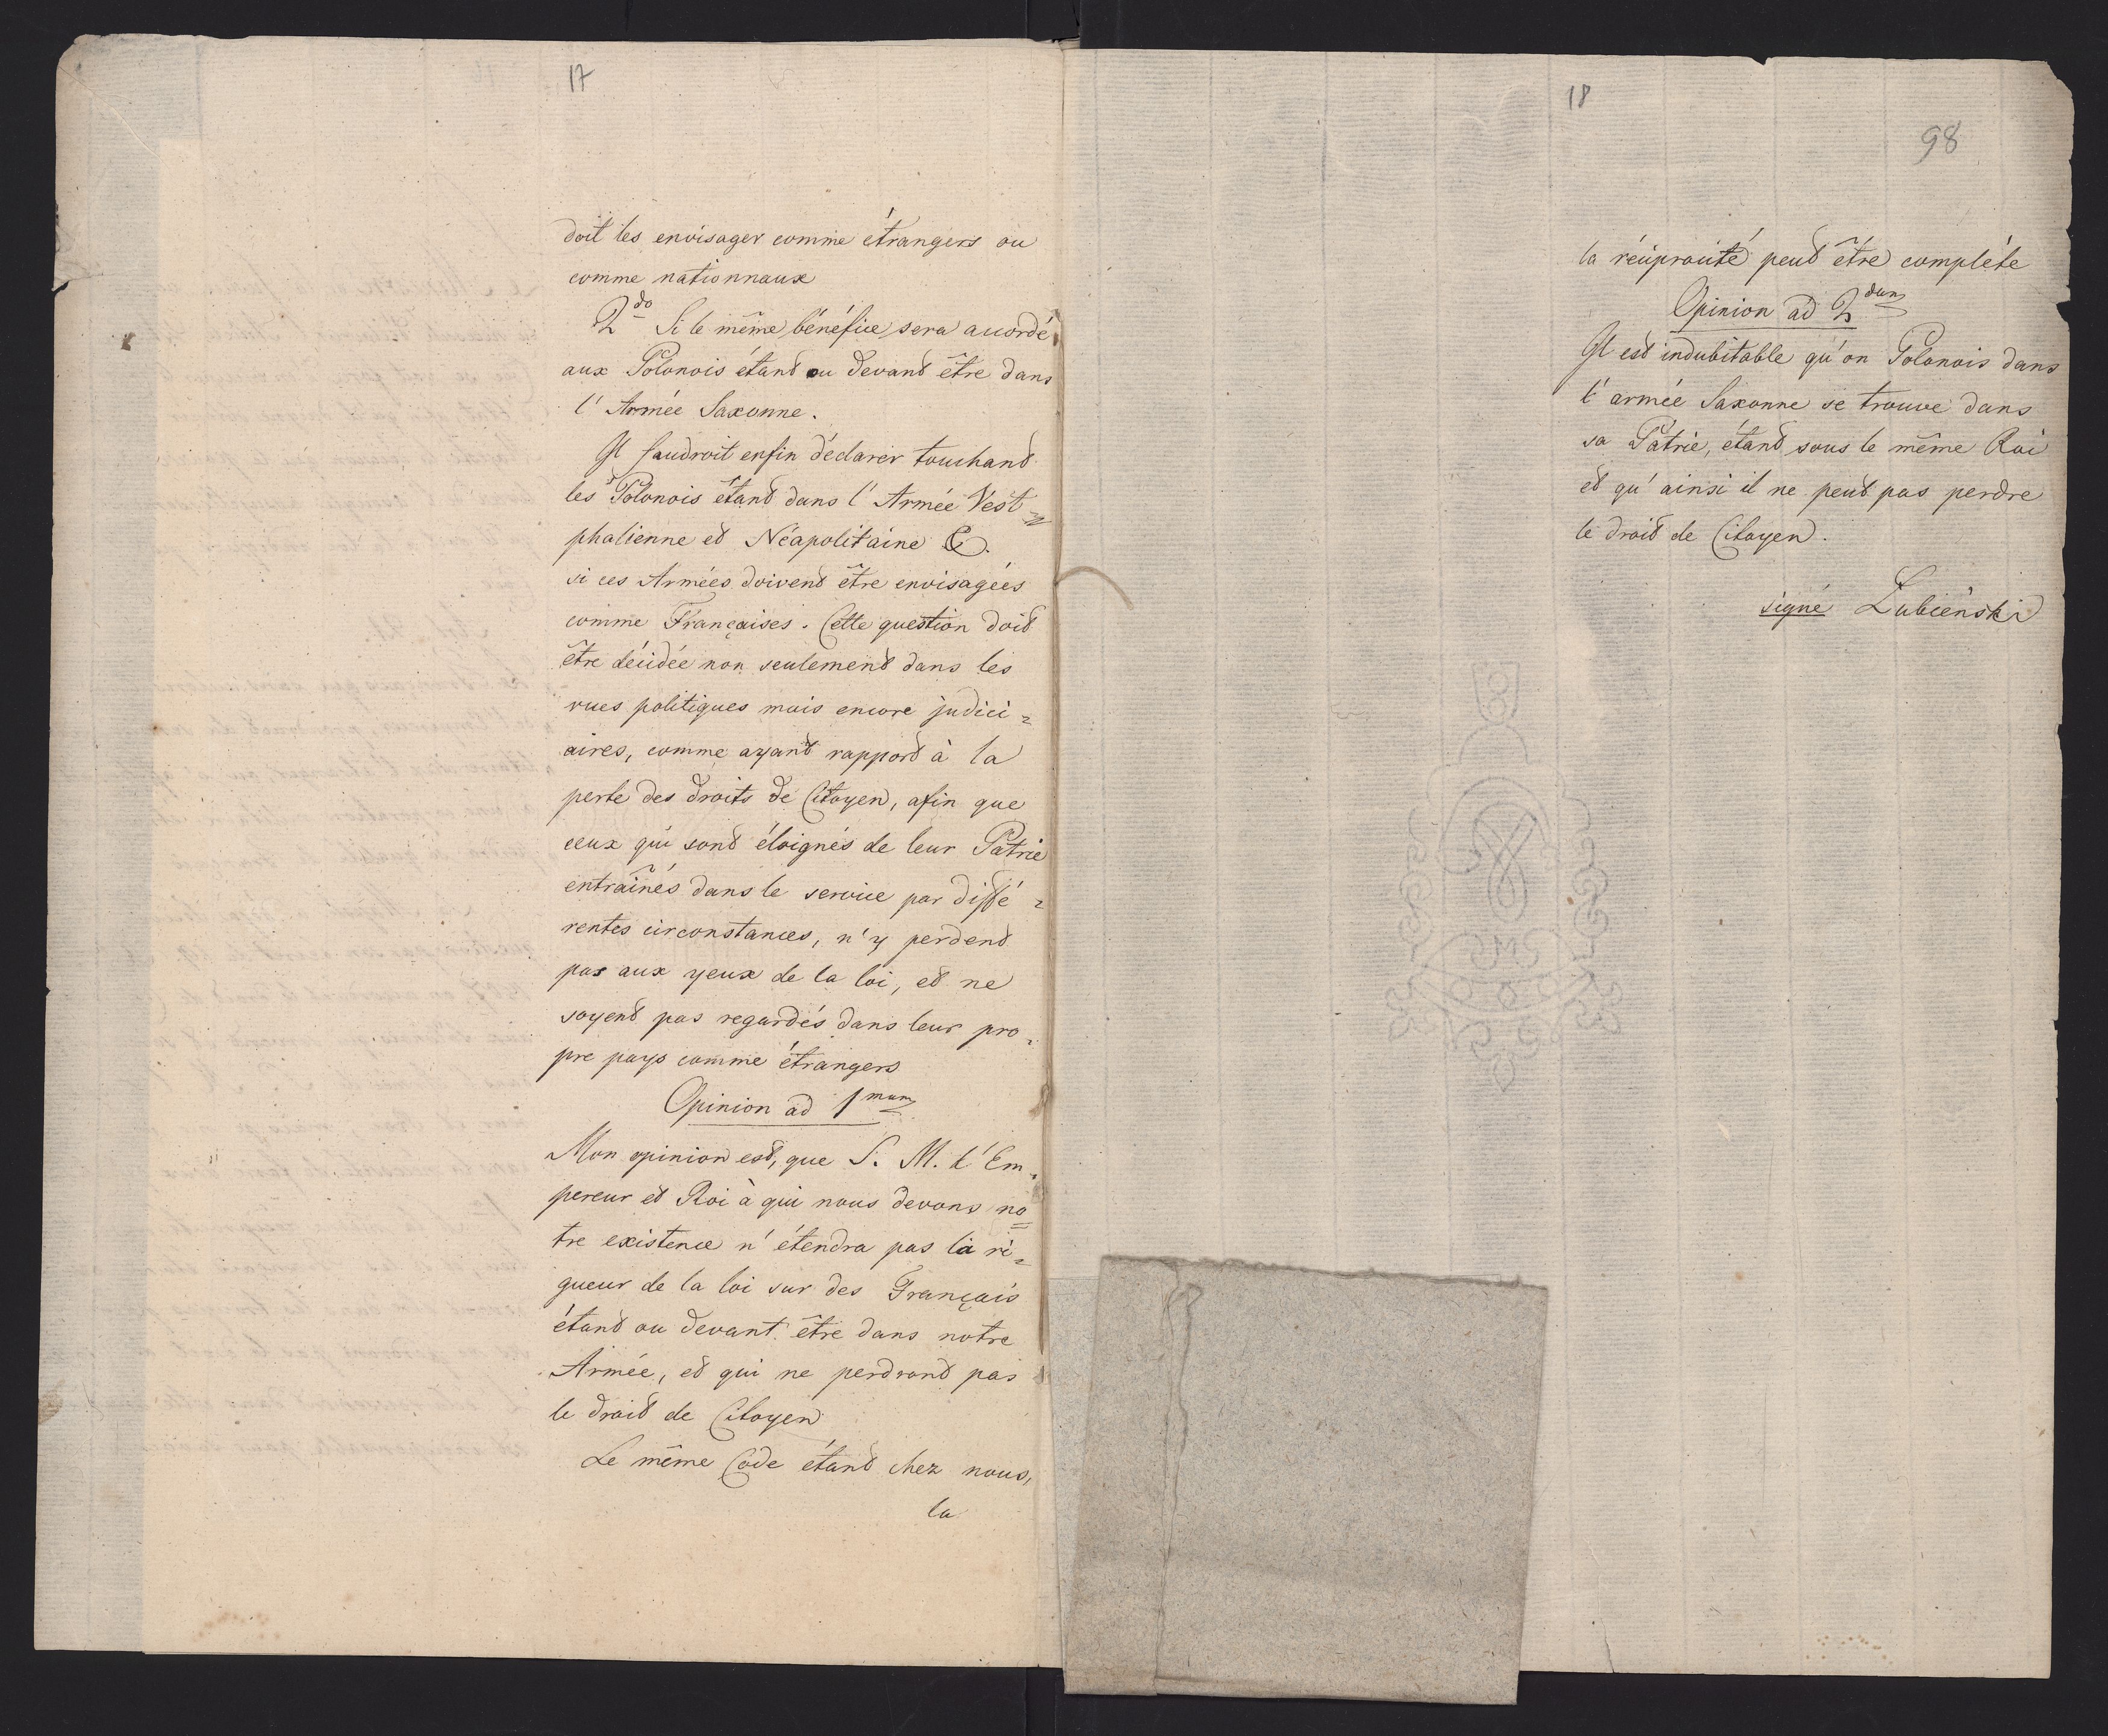 17
doit les envisager comme étrangers ou
comme nationnaux
2do Si le même bénéfice sera accordé
aux Polonois étant ou devant être dans
l'Armée Saxonne.
Il faudroit enfin déclarer touchant
les Polonois étant dans l'Armée Vest=
phalienne et Néapolitaine &.
si ces Armées doivent être envisagées
comme Françaises. Cette question doit
être décidée non seulement dans les
vues politiques mais encore judici=
aires, comme ayant rapport à la
perte des droits de Citoyen, afin que
ceux qui sont éloignés de leur Patrie
entraînés dans le service par diffé=
rentes circonstances, n'y perdent
pas aux yeux de la loi, et ne
soyent pas regardés dans leur pro=
pre pays comme étrangers
Opinion ad 1mum
Mon opinion est, que S. M. l'Em=
pereur et Roi à qui nous devons no=
tre existence n'étendra pas la ri=
gueur de la loi sur des Français
étant ou devant être dans notre
Armée, et qui ne perdront pas
le droit de Citoyen
Le même Code étant chez nous,
la
18
98
la réciprocité peut être complète
Opinion ad 2dum
Il est indubitable qu'on Polonois dans
l'armée Saxonne se trouve dans
sa Patrie, étant sous le même Roi
et qu'ainsi il ne peut pas perdre
le droit de Citoyen.
signé Lubieński